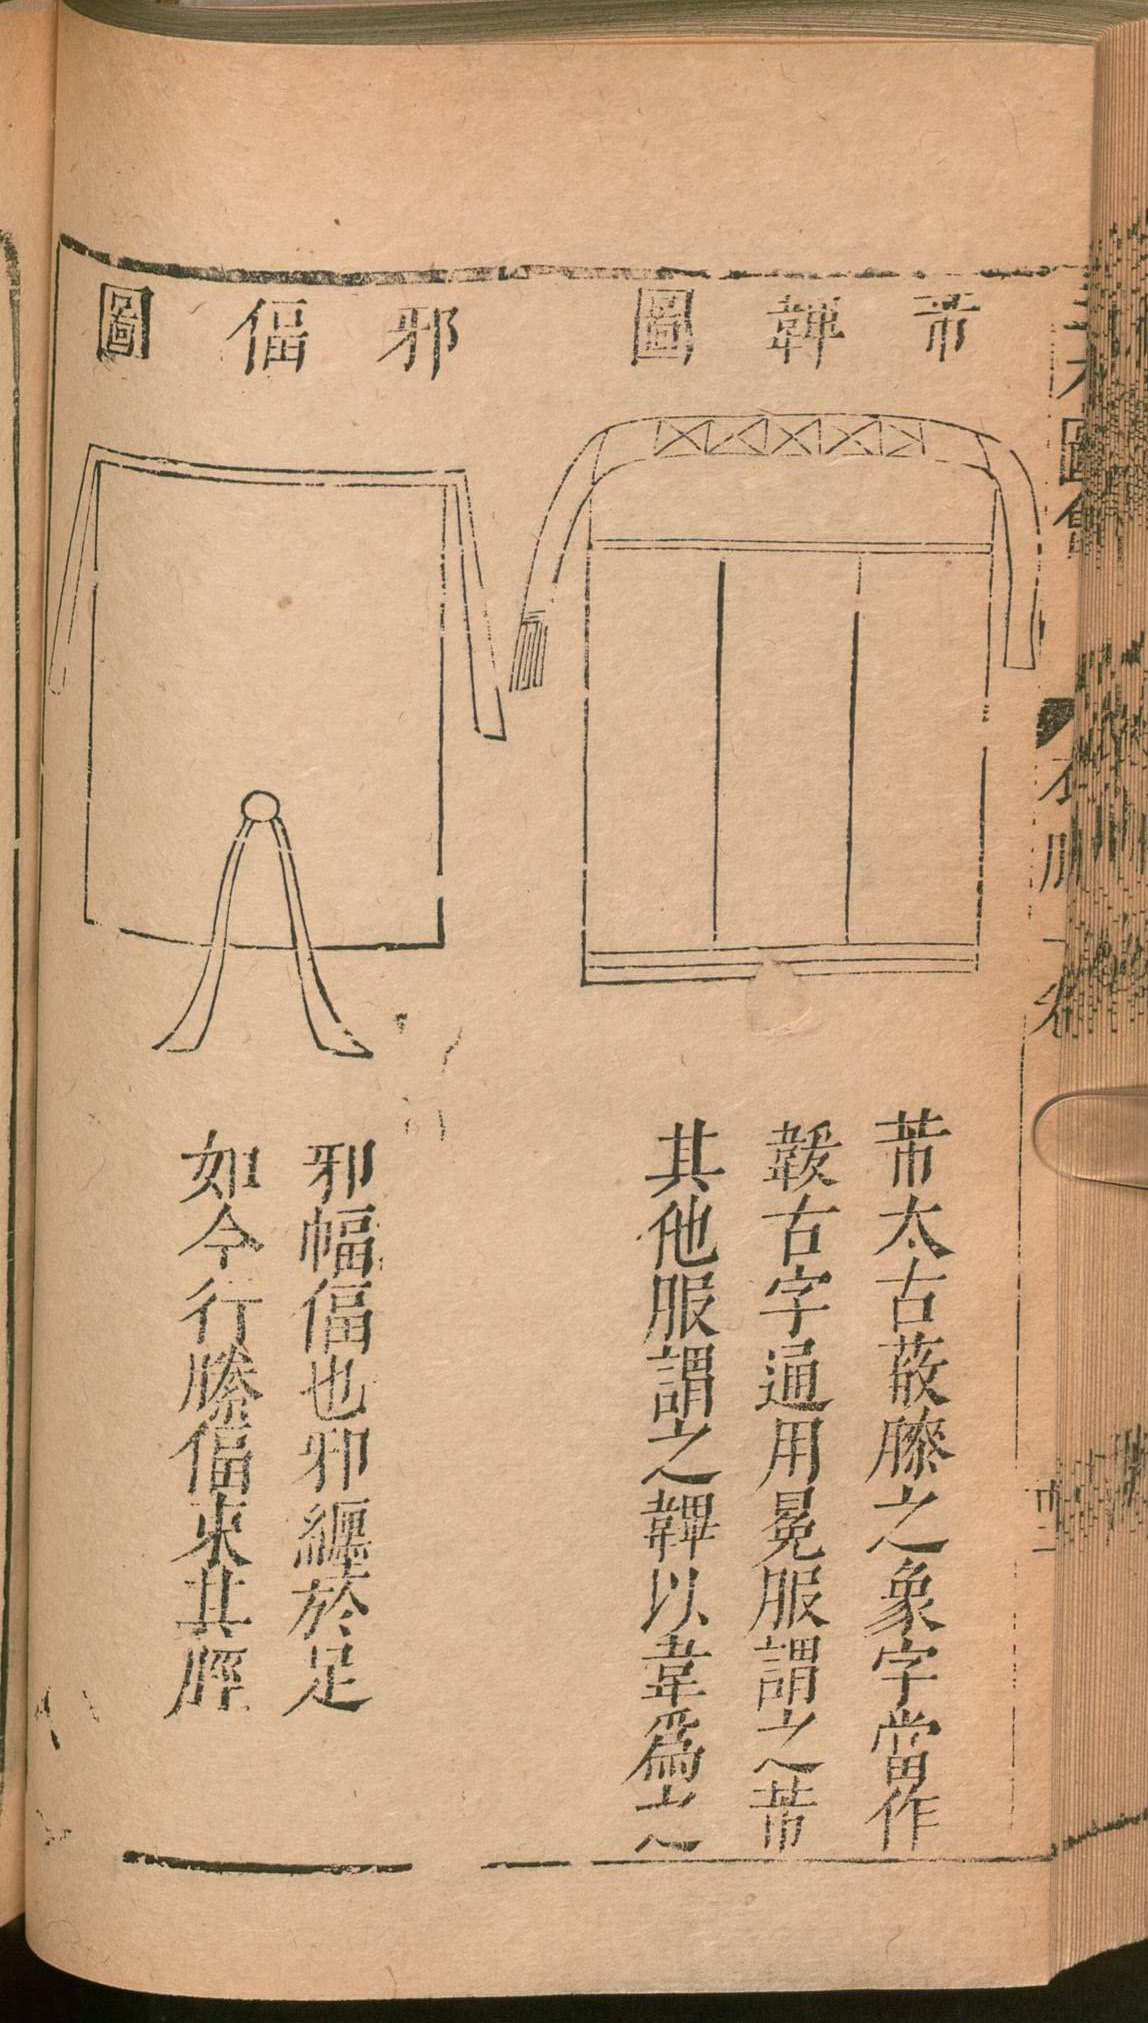 芾韠圖
芾太古蔽膝之象字當作
韍古字通用冕服謂之芾
其他服謂之韠以韋爲之
邪偪圖
邪幅偪也邪纏於足
如今行縢偪束其脛